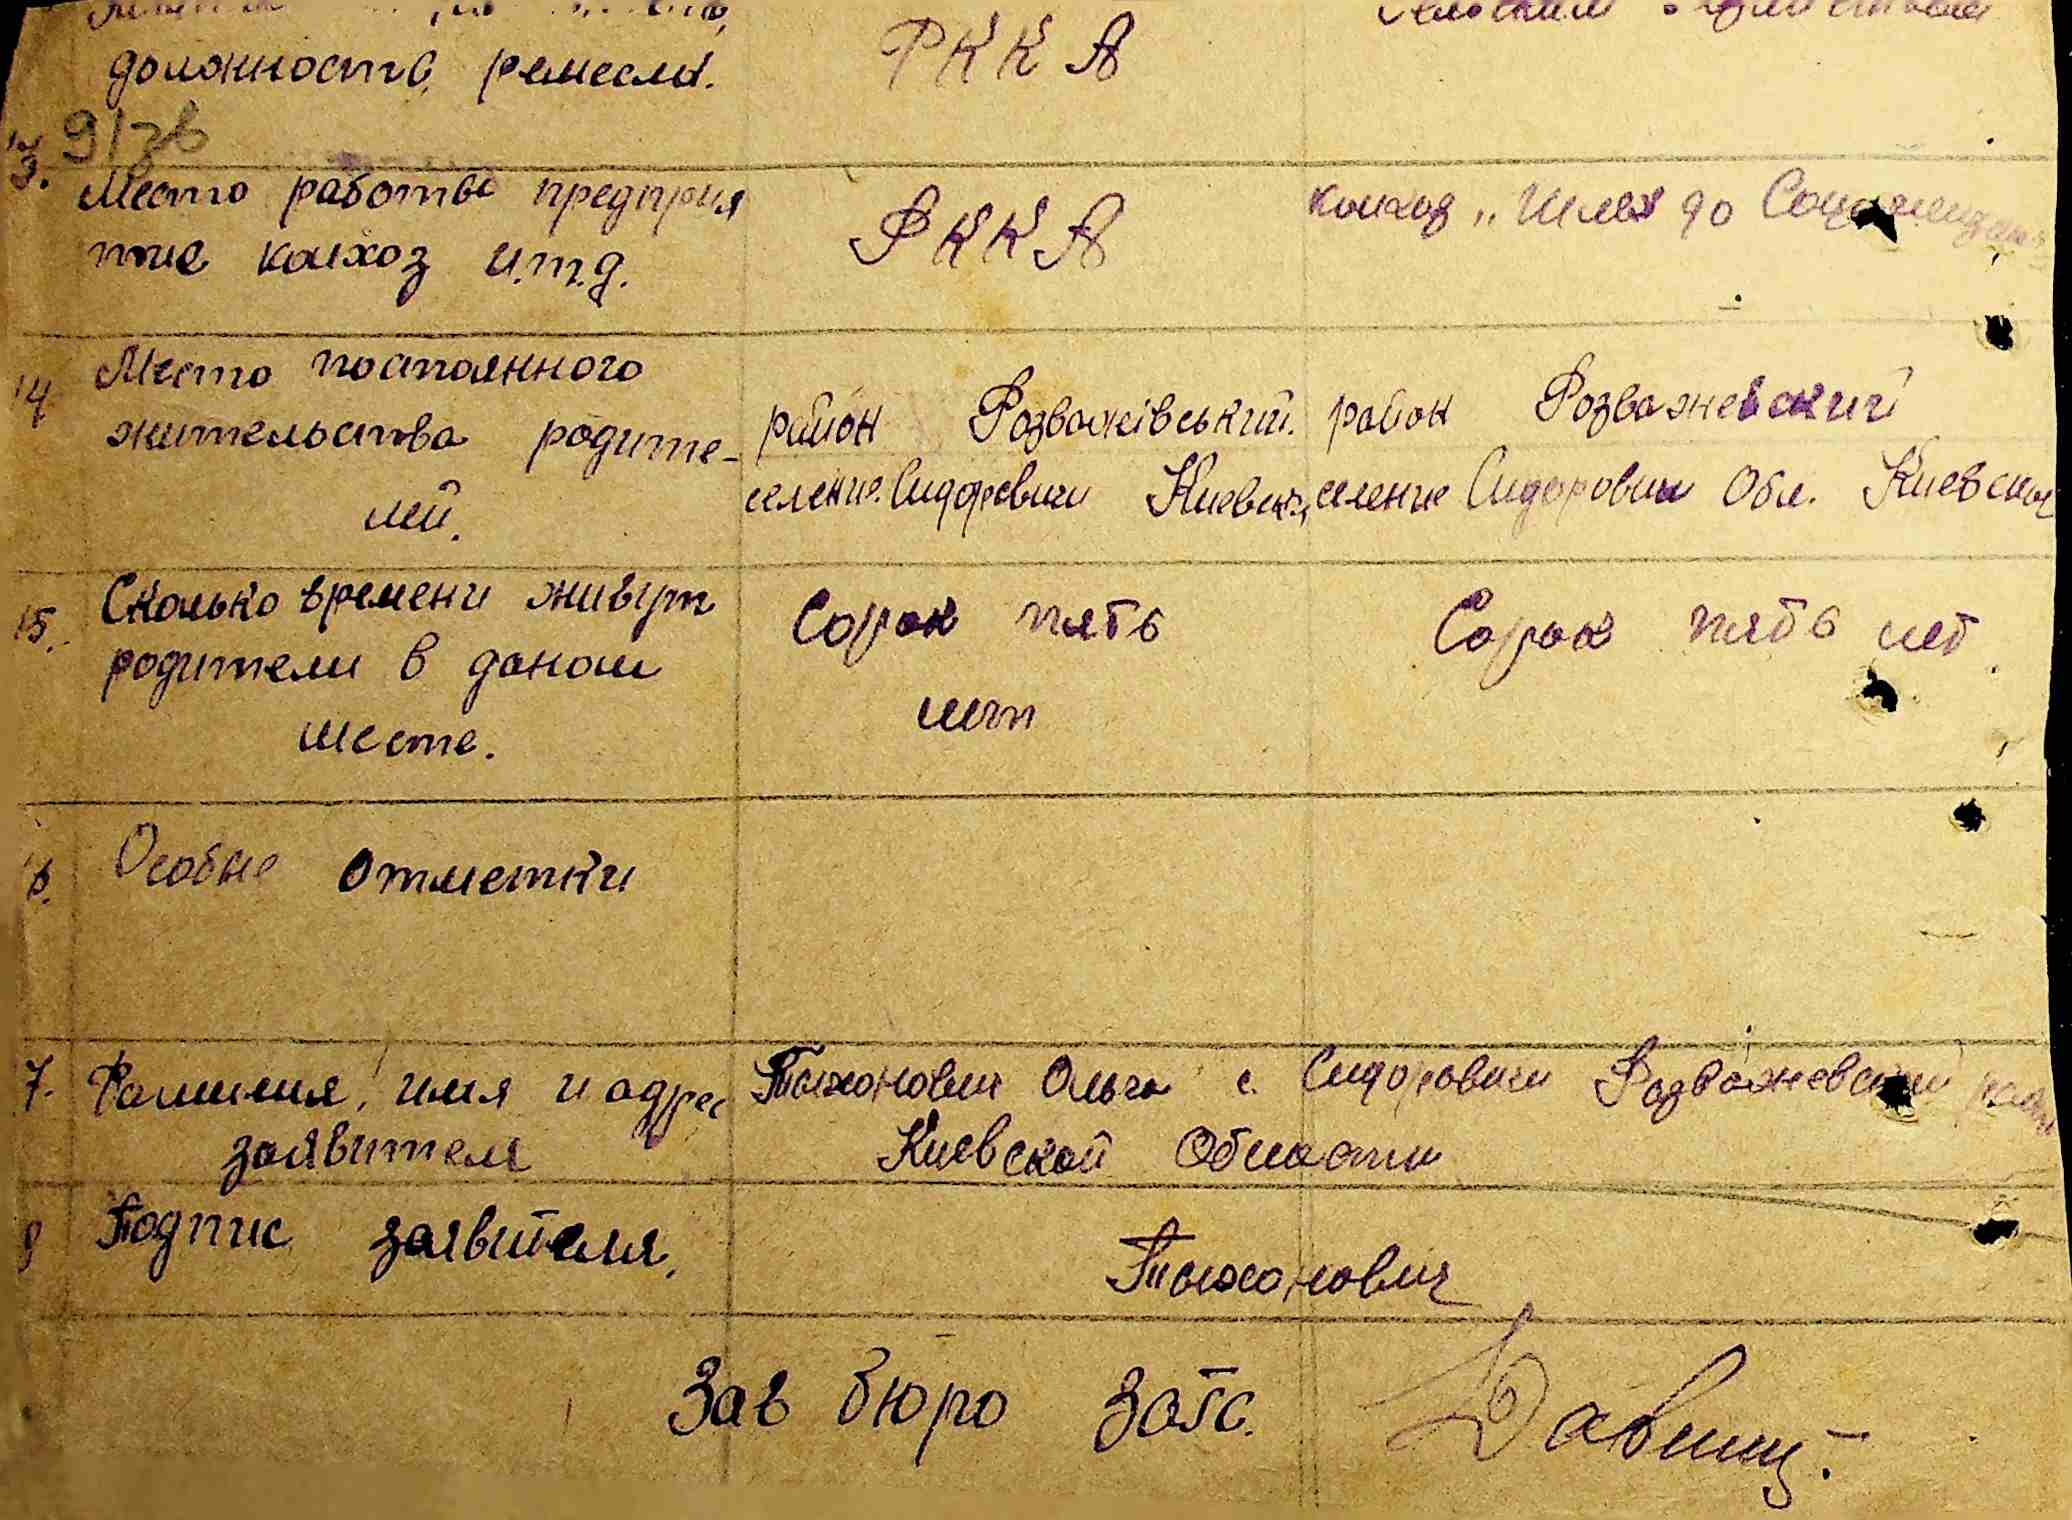 должность, ремесла. РККА
13. Место работы предприя РККА колхоз „Шлях до Социализма
тие колхоз и.т.д.
14. Место постоянного район Розважівський. район Розважевский
жительства родите- селение. Сидоровичи Киевск. селение Сидоровичи Обл. Киевская
лей.
15. Сколько времени живут Сорок пять Сорок пять лет.
родители в даном лет
месте.
6. Особые отметки
7. Фамилия, имя и адрес Тихонович Ольга с. Сидоровичи Розважевский район
заявителя Киевской Области
8 Подпис заявителя. Тихонович
Зав бюро загс.